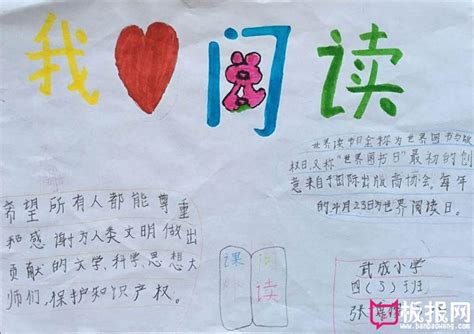 我阅读
世界读书日全称为世界图书与版
权日,又称"世界图书日"最初的创
意来自于国际出版商协会。每年
的4月23日为世界阅读日。
希望所有人都能尊重
和感谢为人类文明做出
贡献的文学,科学,思想大
师们,保护知识产权。
课阅
外读
武成小学
四(3)班
张
板报网
www.banbaowang.com